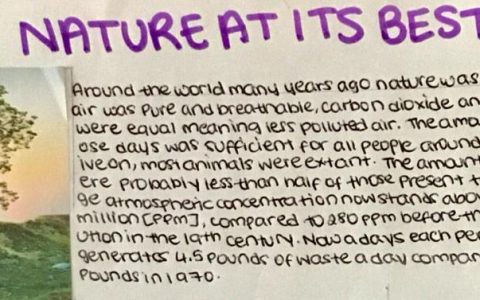 NATURE AT ITS BEST
Around the world many years ago nature was
air was pure and breathable, carbon dioxide an
were equal meaning less polluted air. The amo
ose days was sufficient for all people around
ive on, most animals were extant. The amount
ere probably less than half of those present t
ge atmospheric concentration now stands abov
million [PPm], compared to 280 ppm before th
ution in the 19th century. Now a days each per
generates 4.5 pounds of waste a day compar
pounds in 1970.